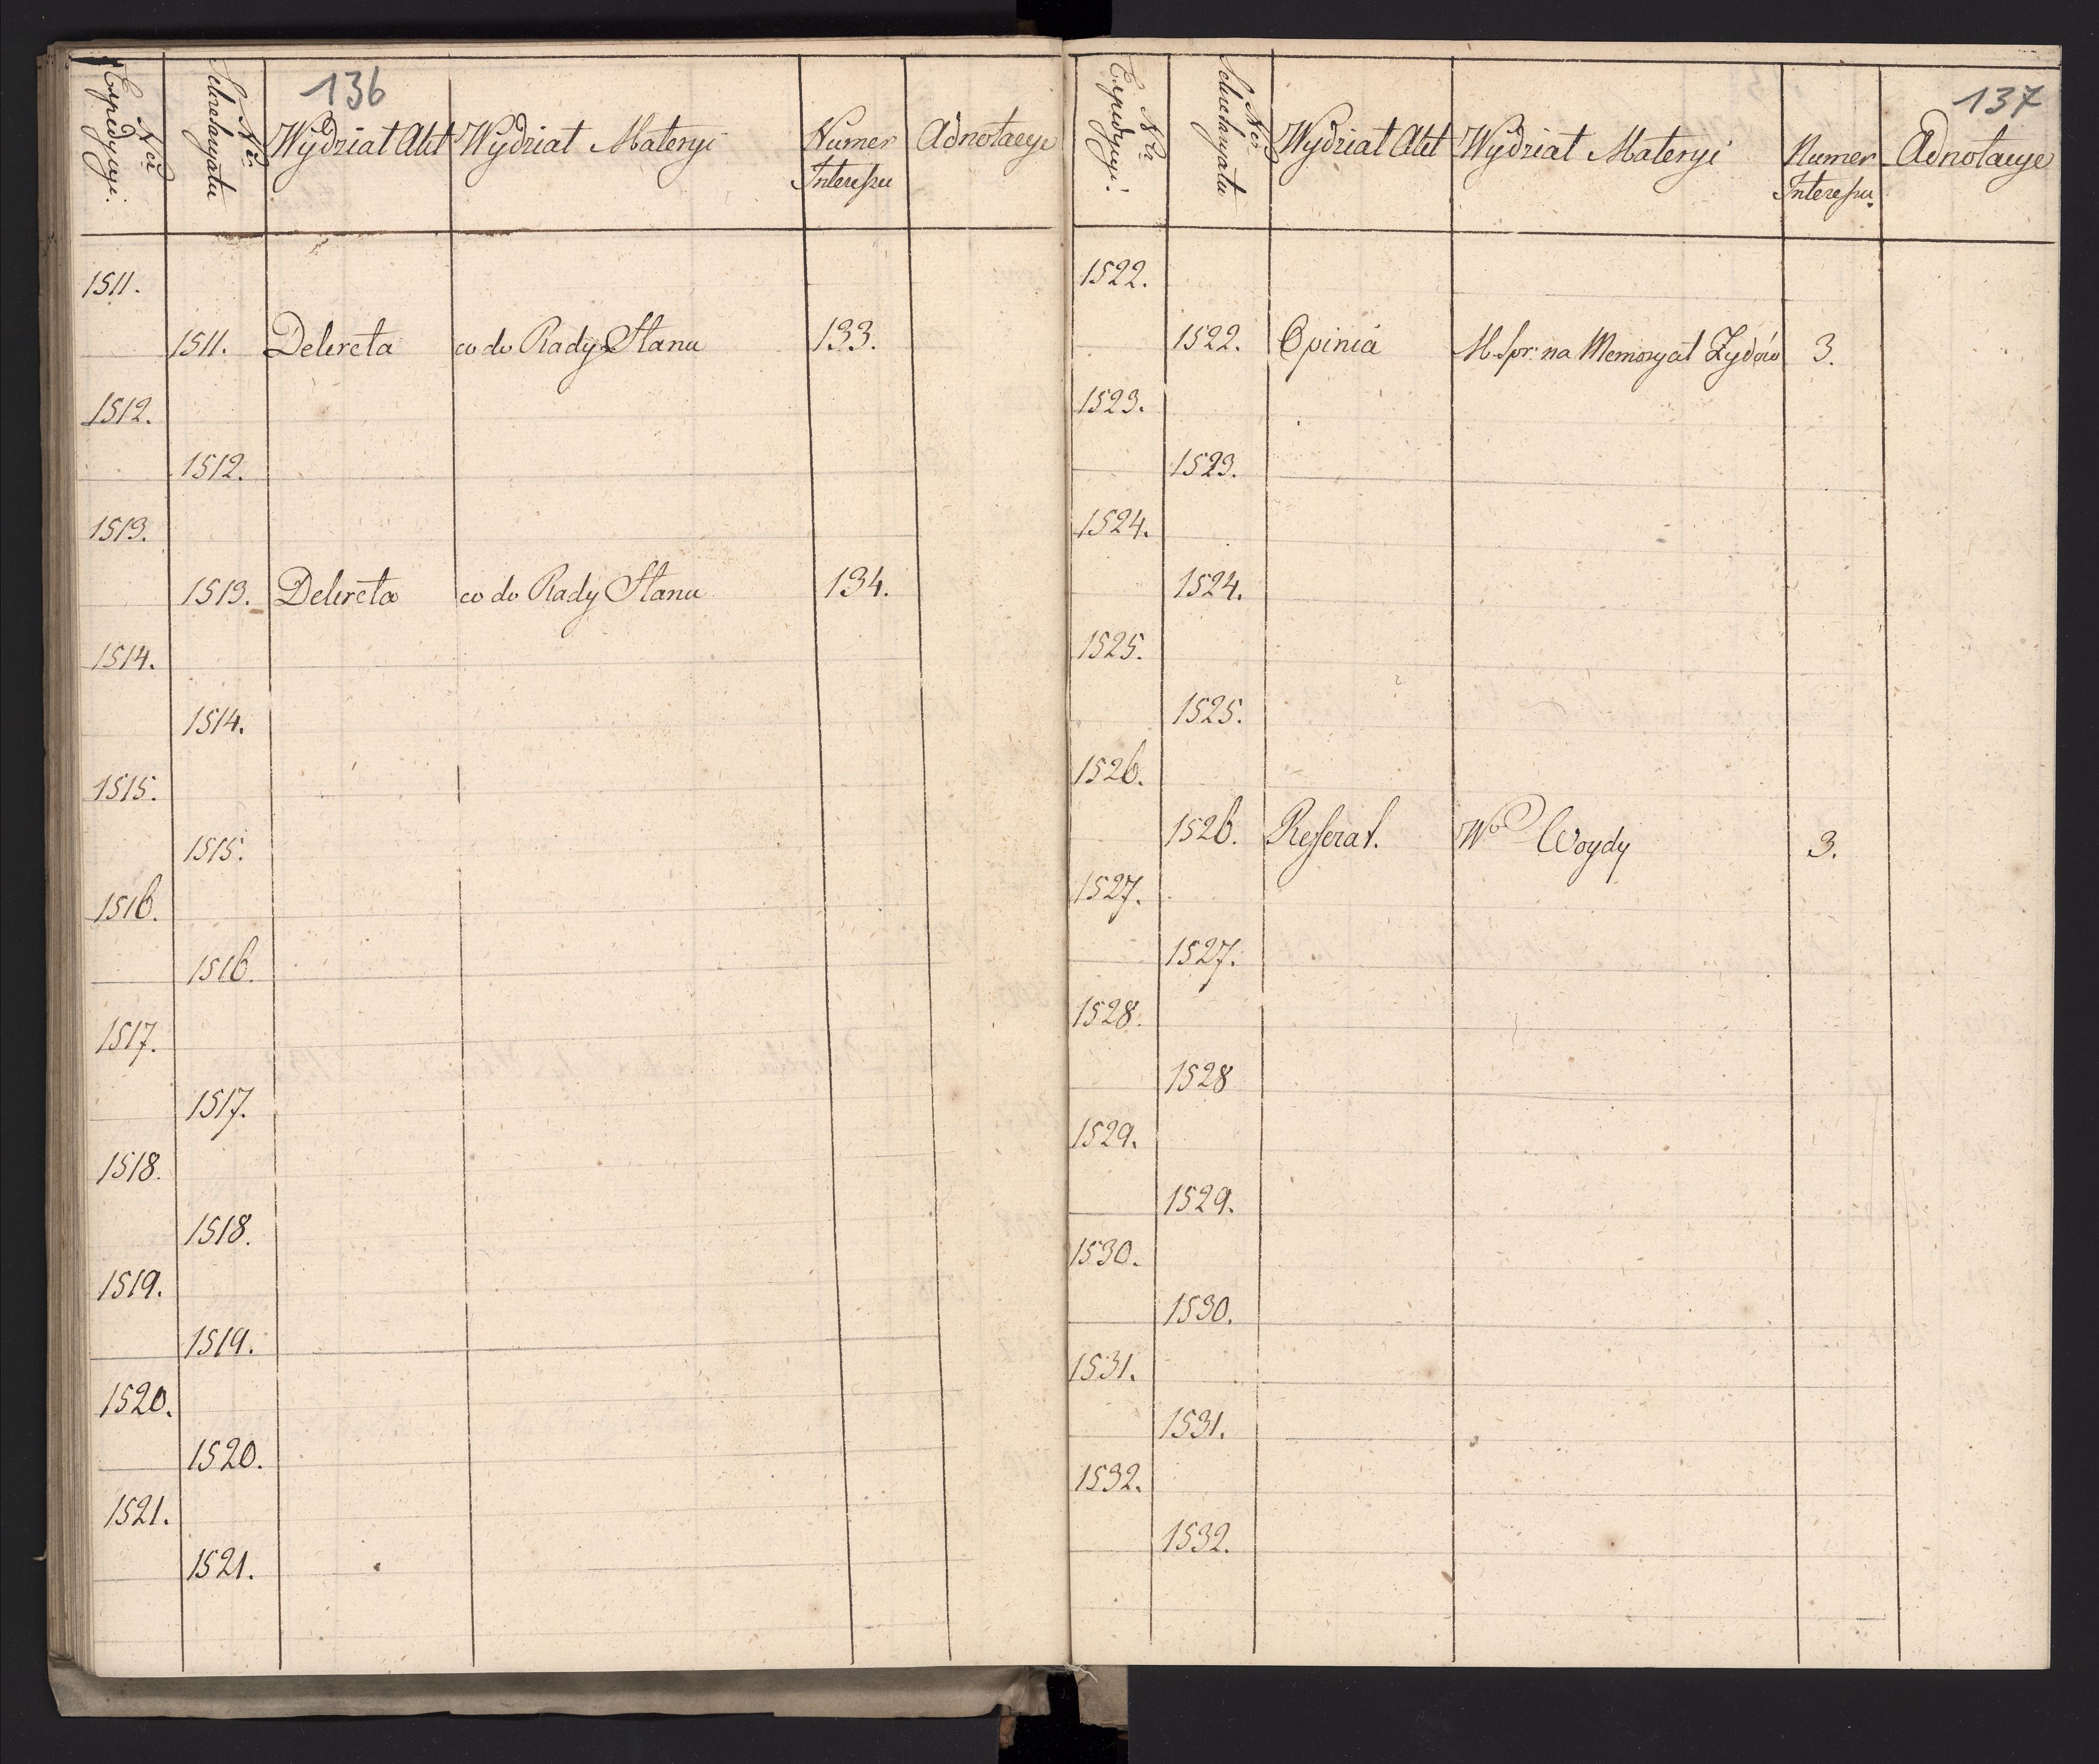 136
Nro Expedycyi. Nro Sekretaryatu Wydział Akt Wydział Materyi Numer Interessu Adnotacye
1511.
1511. Dekreta co do Rady Stanu 133.
1512.
1512.
1513.
1513. Dekreta co do Rady Stanu 134.
1514.
1514.
1515.
1515.
1516.
1516.
1517.
1517.
1518.
1518.
1519.
1519.
1520.
1520.
1521.
1521.
137
Nro Expedycyi. Nro Sekretaryatu Wydział Akt Wydział Materyi Numer Interessu. Adnotacye
1522.
1522. Opinia M. Spr: na Memoryał Żydów 3.
1523.
1523.
1524.
1524.
1525.
1525.
1526.
1526. Refferat. Wo Woydy 3.
1527.
1527.
1528.
1528
1529.
1529.
1530.
1530.
1531.
1531.
1532.
1532.